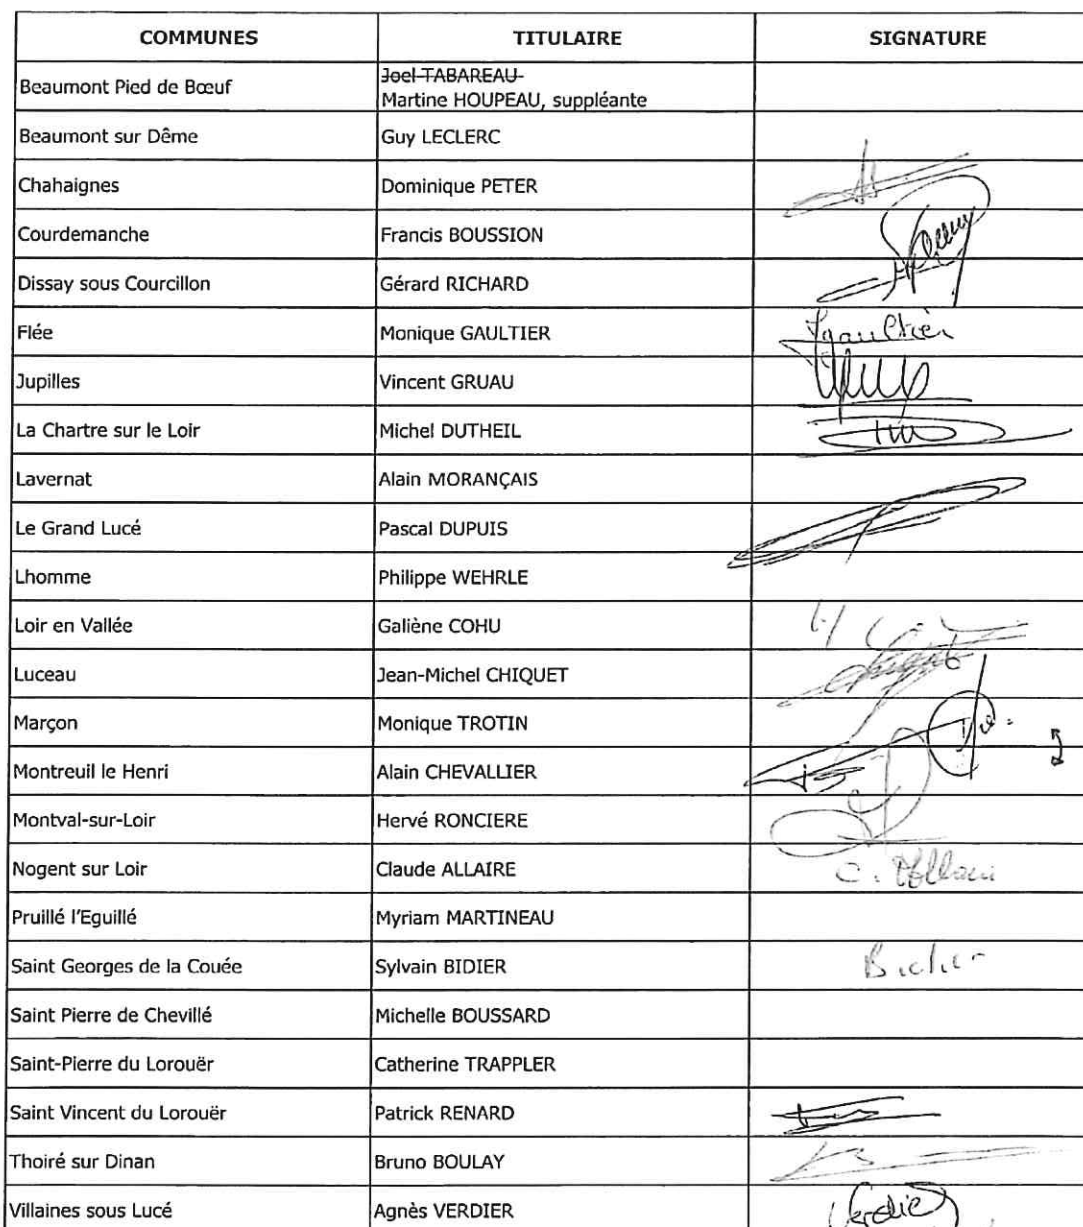 COMMUNES TITULAIRE SIGNATURE
Beaumont Pied de Bœuf Joel TABAREAU
Martine HOUPEAU, suppléante
Beaumont sur Dême Guy LECLERC
Chahaignes Dominique PETER
Courdemanche Francis BOUSSION
Dissay sous Courcillon Gérard RICHARD
Flée Monique GAULTIER gaultier
Jupilles Vincent GRUAU
La Chartre sur le Loir Michel DUTHEIL
Lavernat Alain MORANÇAIS
Le Grand Lucé Pascal DUPUIS
Lhomme Philippe WEHRLE
Loir en Vallée Galiène COHU
Luceau Jean-Michel CHIQUET
Marçon Monique TROTIN
Montreuil le Henri Alain CHEVALLIER
Montval-sur-Loir Hervé RONCIERE
Nogent sur Loir Claude ALLAIRE
Pruillé l'Eguillé Myriam MARTINEAU
Saint Georges de la Couée Sylvain BIDIER Bidier
Saint Pierre de Chevillé Michelle BOUSSARD
Saint-Pierre du Lorouër Catherine TRAPPLER
Saint Vincent du Lorouër Patrick RENARD
Thoiré sur Dinan Bruno BOULAY
Villaines sous Lucé Agnès VERDIER Verdier